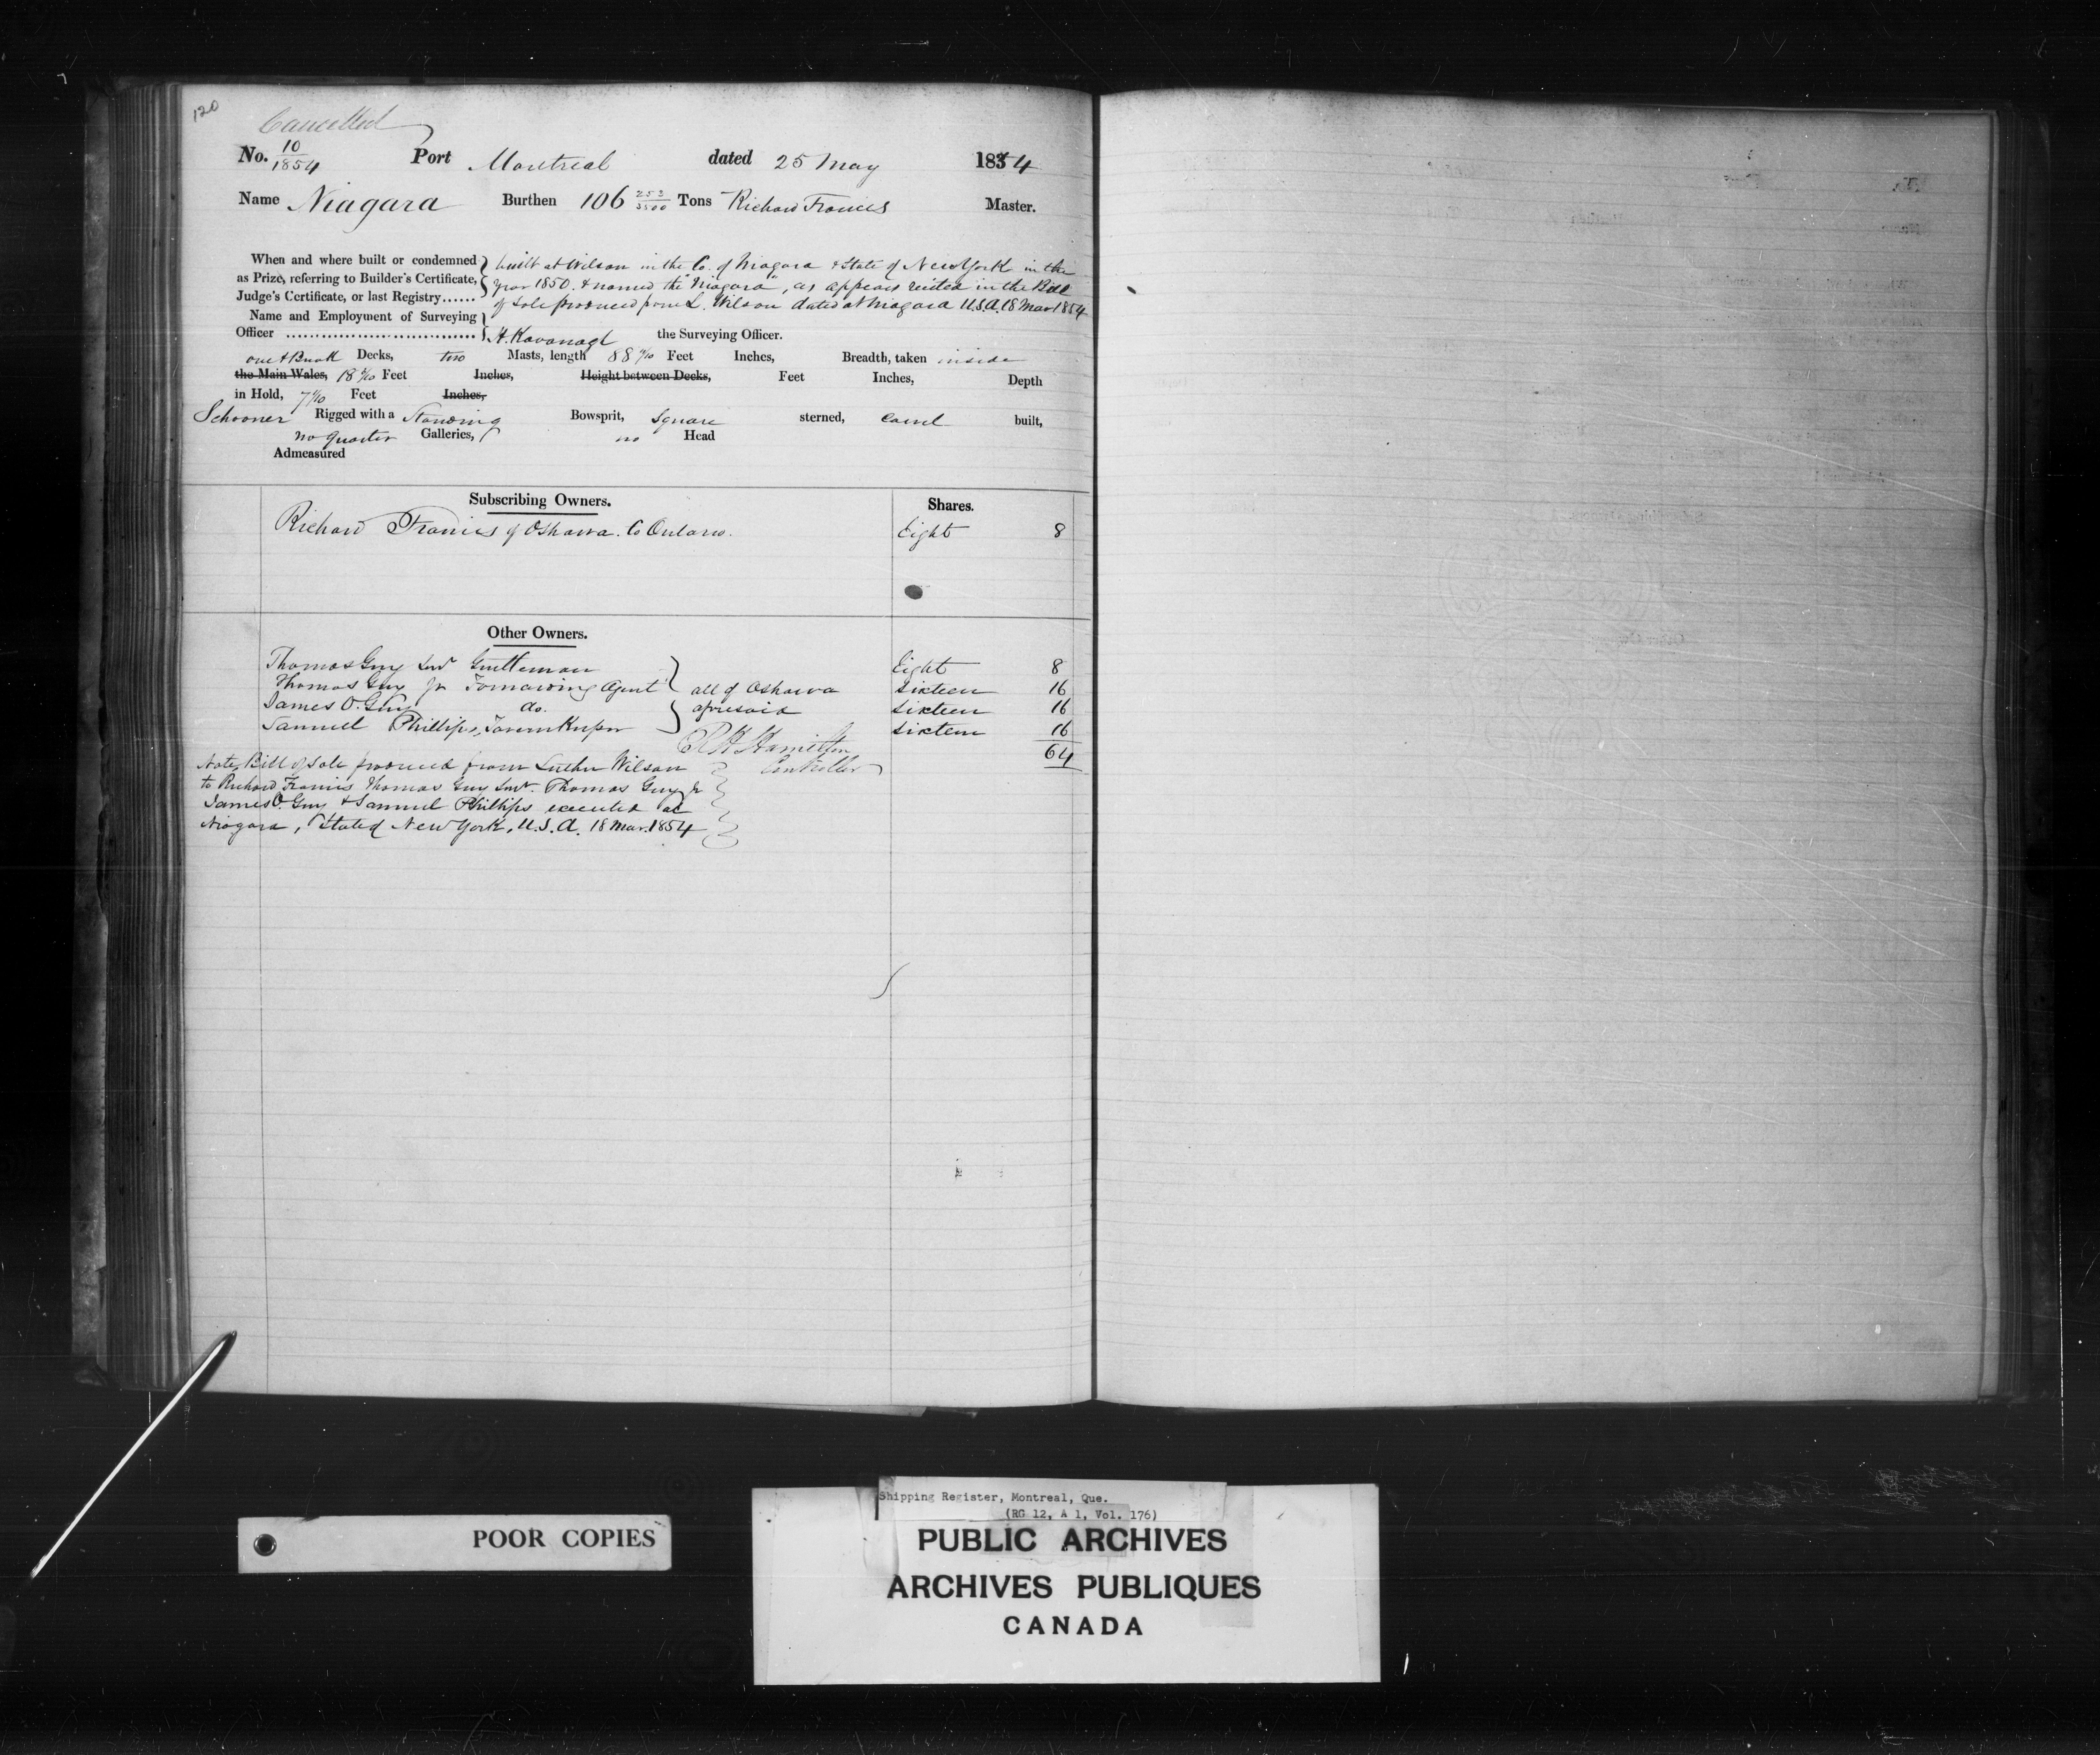 120
Cancelled
No. 10/1854 Port Montreal dated 25 May 1854
Name Niagara Burthen 106 253/3500 Tons Richard Francis Master.
When and where built or condemned as Prize, referring to Builder's Certificate, Judge's Certificate, or last Registry......
built at Wilson in the Co. of Niagara & State of New York in the
year 1850. & named the "Niagara", as appears recited in the Bill
of Sale produced from L. Wilson dated at Niagara U.S.A. 18 Mar 1854
Name and Employment of Surveying Officer
H. Kavanagh the Surveying Officer.
one & Break Decks, two Masts, length 88 /10 Feet Inches, Breadth, taken inside
the Main Wales, 18 /10 Feet Inches, Height between Decks, Feet Inches, Depth
in Hold, 7 /10 Feet Inches,
Schooner Rigged with a Standing Bowsprit, Square sterned, Carvel built,
no quarter Galleries, no Head
Admeasured
Subscribing Owners. Shares.
Richard Francis of Oshawa. Co Ontario. Eight 8
Other Owners.
Thomas Guy Senr Gentleman Eight 8
Thomas Guy Jr Forwarding Agent all of Oshawa Sixteen 16
James O. Guy do. aforesaid Sixteen 16
Samuel Phillips, Tavern Keeper Sixteen 16
64
R H Hamilton
Controller
Note, Bill of Sale produced from Luther Wilson
to Richard Francis Thomas Guy Senr. Thomas Guy Jr
James O. Guy & Samuel Phillips executed at
Niagara, State of New York, U.S.A. 18 Mar. 1854
POOR COPIES
Shipping Register, Montreal, Que.
(RG 12, A 1, Vol. 176)
PUBLIC ARCHIVES
ARCHIVES PUBLIQUES
CANADA